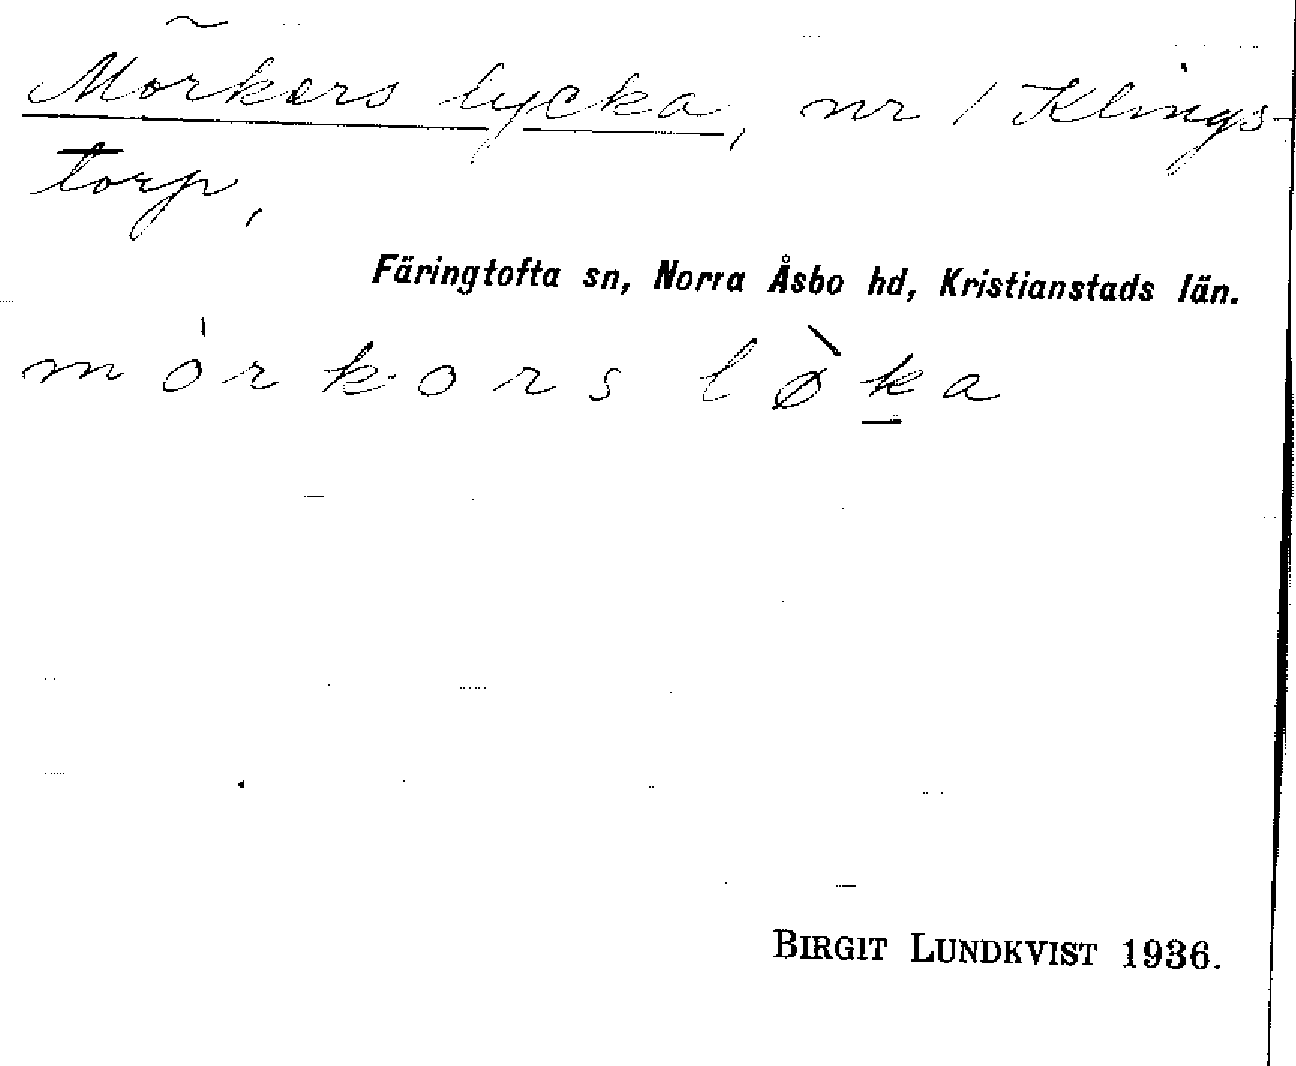 Mörkers lycka, nr 1 Klings-
torp,
Färingtofta sn, Norra Åsbo hd, Kristianstads län.
mórkors lø̀ḵa
BIRGIT LUNDKVIST 1936.